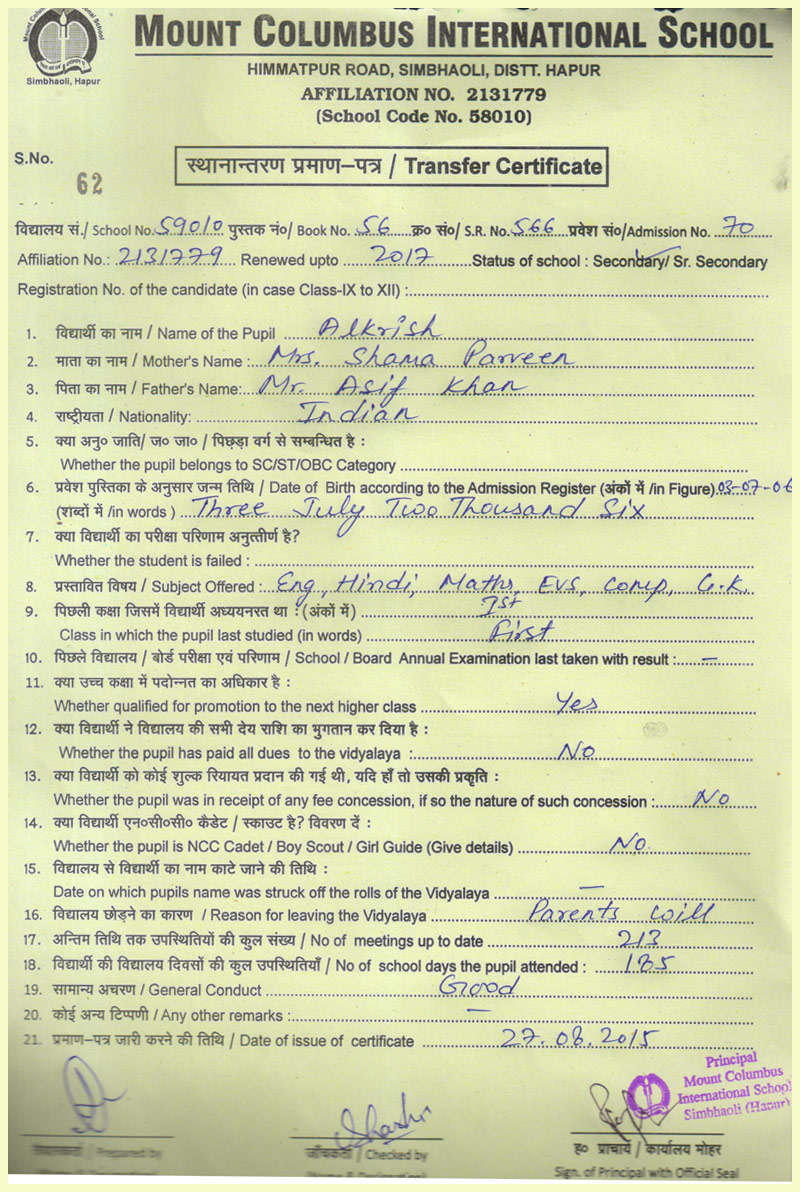 Simbhaoli, Hapur
MOUNT COLUMBUS INTERNATIONAL SCHOOL
HIMMATPUR ROAD, SIMBHAOLI, DISTT. HAPUR
AFFILIATION NO. 2131779
(School Code No. 58010)
S.No. 62
स्थानान्तरण प्रमाण–पत्र / Transfer Certificate
विद्यालय सं./ School No. 59010 पुस्तक नं०/ Book No. 56 क्र० सं०/ S.R. No. 566 प्रवेश सं०/Admission No. 70
Affiliation No.: 2131779 Renewed upto 2017 Status of school : Secondary/ Sr. Secondary
Registration No. of the candidate (in case Class-IX to XII) :
1. विद्यार्थी का नाम / Name of the Pupil Alkrish
2. माता का नाम / Mother's Name : Mrs. Shama Parveen
3. पिता का नाम / Father's Name: Mr. Asif Khan
4. राष्ट्रीयता / Nationality: Indian
5. क्या अनु० जाति/ ज० जा० / पिछड़ा वर्ग से सम्बन्धित है :
Whether the pupil belongs to SC/ST/OBC Category
6. प्रवेश पुस्तिका के अनुसार जन्म तिथि / Date of Birth according to the Admission Register (अंकों में /in Figure) 03-07-06
(शब्दों में /in words ) Three July Two Thousand Six
7. क्या विद्यार्थी का परीक्षा परिणाम अनुत्तीर्ण है?
Whether the student is failed :
8. प्रस्तावित विषय / Subject Offered : Eng, Hindi, Maths, EVS, Comp, G.K.
9. पिछली कक्षा जिसमें विद्यार्थी अध्ययनरत था : (अंकों में) Ist
Class in which the pupil last studied (in words) First
10. पिछले विद्यालय / बोर्ड परीक्षा एवं परिणाम / School / Board Annual Examination last taken with result : —
11. क्या उच्च कक्षा में पदोन्नत का अधिकार है :
Whether qualified for promotion to the next higher class Yes
12. क्या विद्यार्थी ने विद्यालय की सभी देय राशि का भुगतान कर दिया है :
Whether the pupil has paid all dues to the vidyalaya : No
13. क्या विद्यार्थी को कोई शुल्क रियायत प्रदान की गई थी, यदि हाँ तो उसकी प्रकृति :
Whether the pupil was in receipt of any fee concession, if so the nature of such concession : No
14. क्या विद्यार्थी एन०सी०सी० कैडेट / स्काउट है? विवरण दें :
Whether the pupil is NCC Cadet / Boy Scout / Girl Guide (Give details) No.
15. विद्यालय से विद्यार्थी का नाम काटे जाने की तिथि :
Date on which pupils name was struck off the rolls of the Vidyalaya —
16. विद्यालय छोड़ने का कारण / Reason for leaving the Vidyalaya Parents will
17. अन्तिम तिथि तक उपस्थितियों की कुल संख्य / No of meetings up to date 213
18. विद्यार्थी की विद्यालय दिवसों की कुल उपस्थितियाँ / No of school days the pupil attended : 185
19. सामान्य अचरण / General Conduct Good
20. कोई अन्य टिप्पणी / Any other remarks : —
21. प्रमाण–पत्र जारी करने की तिथि / Date of issue of certificate 27.08.2015
Principal
Mount Columbus
International School
Simbhaoli (Hapur)
Prepared by
जाँचकर्ता / Checked by
ह० प्राचार्य / कार्यालय मोहर
Sign. of Principal with Official Seal